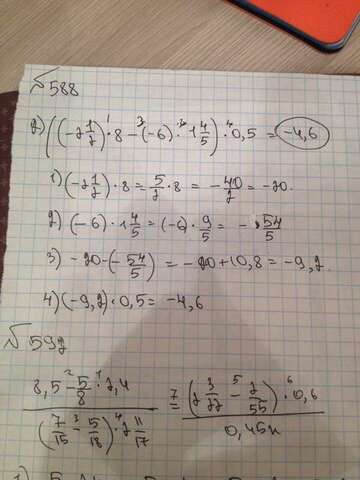 №588
2) ((-2 1/2) · 8 - (-6) · 1 4/5) · 0,5 = -4,6
1) (-2 1/2) · 8 = 5/2 · 8 = - 40/2 = -20.
2) (-6) · 1 4/5 = (-6) · 9/5 = - 54/5
3) -20-(- 54/5) = -20+10,8 = -9,2.
4) (-9,2) · 0,5 = -4,6
№592
8,5 - 5/8 · 2,4 / (7/15 - 5/18) · 2 11/17 = (2 3/22 - 2/55) · 0,6 / 0,45x